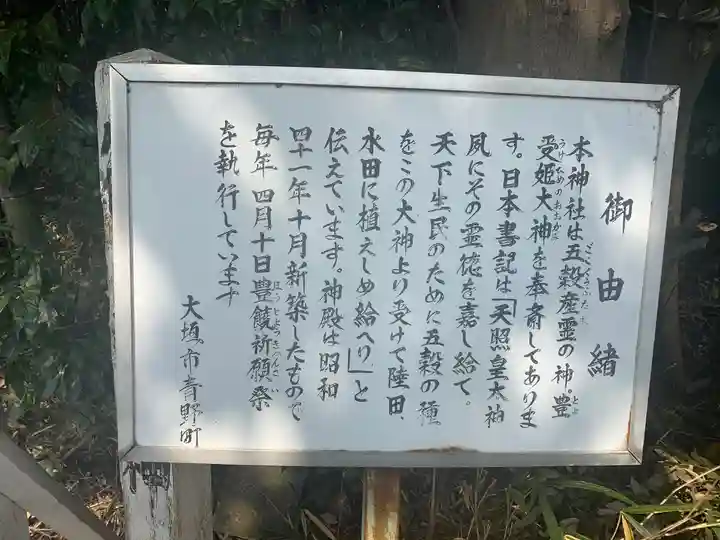 御由緒
本神社は五穀産霊の神。豊
受姫大神を奉斎してありま
す。日本書記は「天照皇大神
夙にその霊徳を嘉し給て。
天下生民のために五穀の種
をこの大神より受けて陸田、
水田に植えしめ給へり」と
伝えています。神殿は昭和
四十一年十月新築したもので
毎年四月十日豊饌祈願祭
を執行しています
大垣市青野町